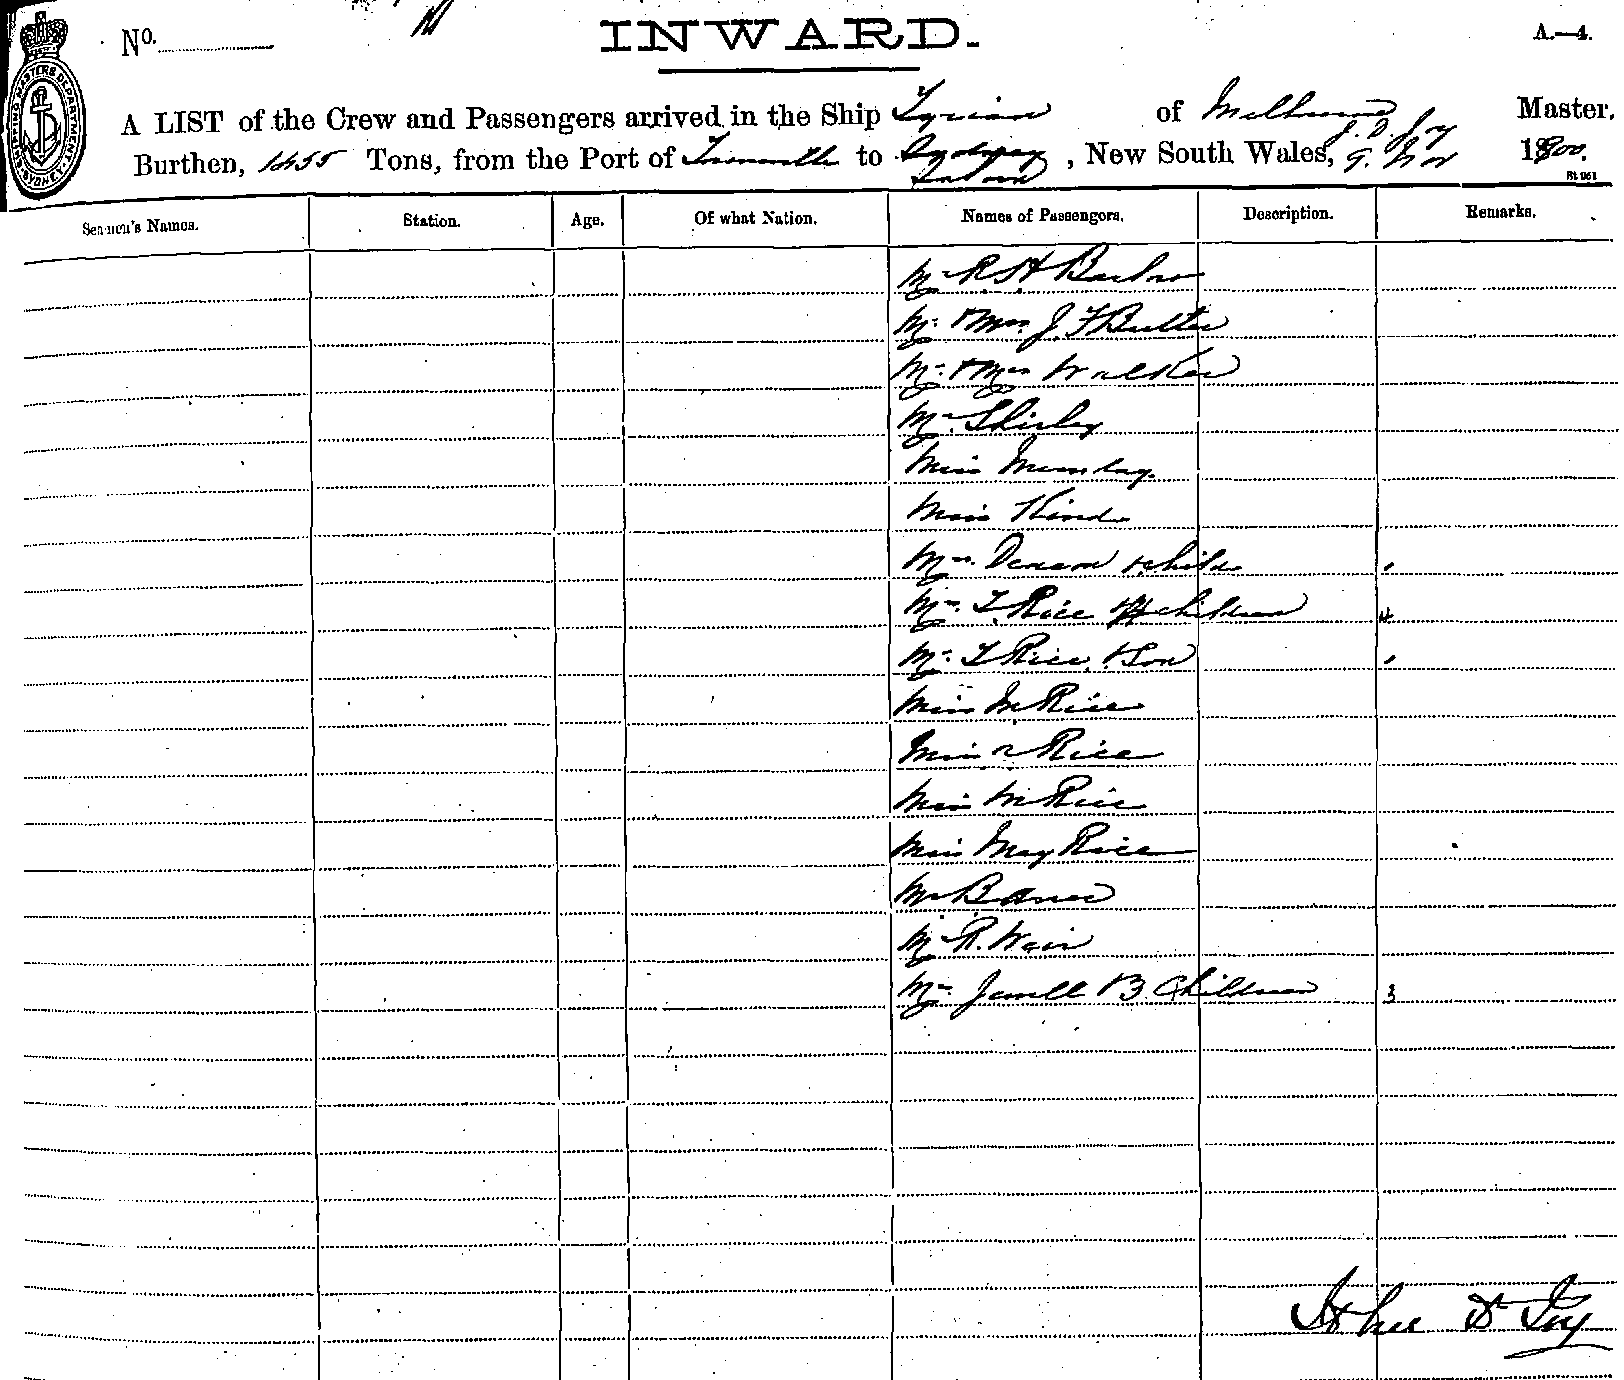 No.
INWARD.
A.—4.
A LIST of the Crew and Passengers arrived in the Ship Tyrian of Melbourne Master,
Burthen, 1455 Tons, from the Port of Townsville to Sydney, New South Wales, 9. Nov 1900.
Seamen's Names. Station. Age. Of what Nation. Names of Passengers. Description. Remarks.
Mr R. H Barlow
Mr & Mrs J. F Butler
Mr & Mrs Walker
Mr Shirley
Miss
Miss Hind
Mrs & child
Mrs T. Rice & 4 children 4
Mr T Rice & Son
Miss M Rice
Miss Rice
Miss M Rice
Miss May Rice
Mr
Mr R. Weir
Mrs & 3 Children 3